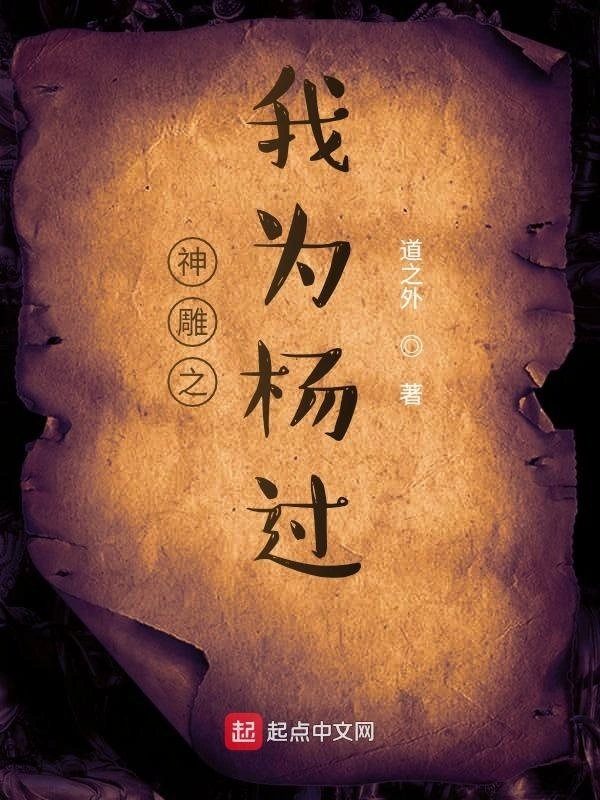 神雕之
我为杨过
道之外 ◎ 著
起 起点中文网